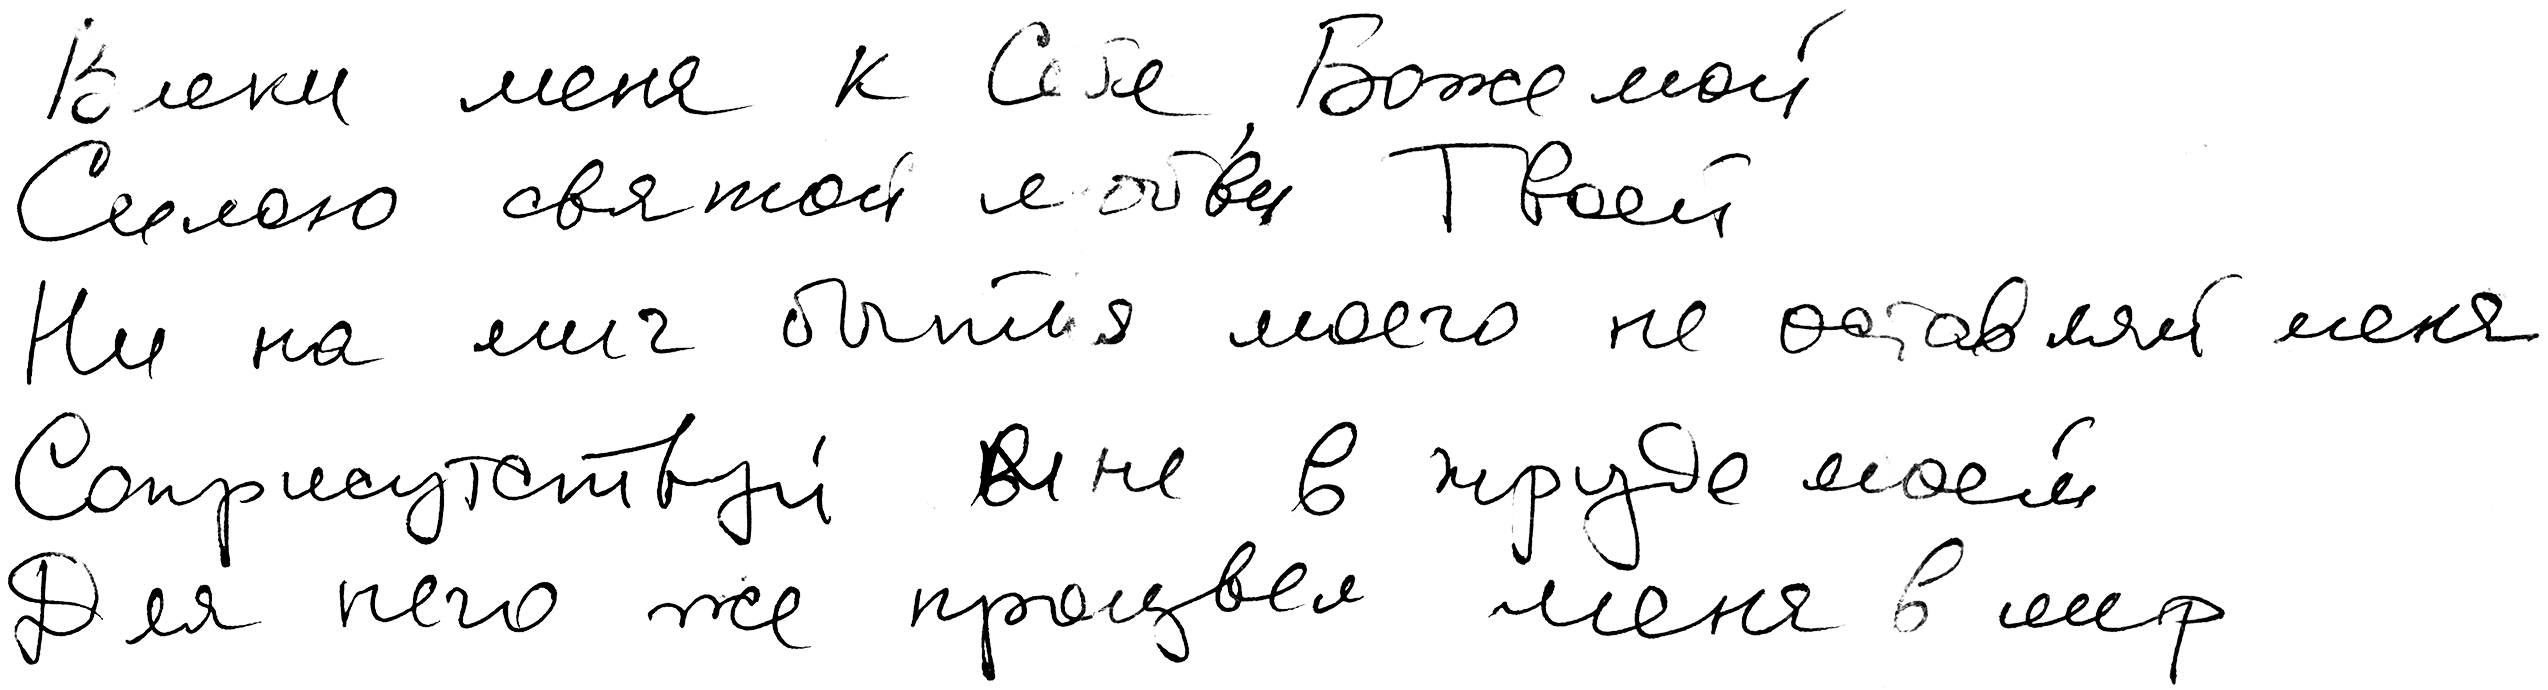 Влеки меня к Себе, Боже мой
Силою святой любви Твоей
Ни на миг бытия моего не оставляй меня
Соприсутствуй мне в труде моем
Для него же произвел меня в мир